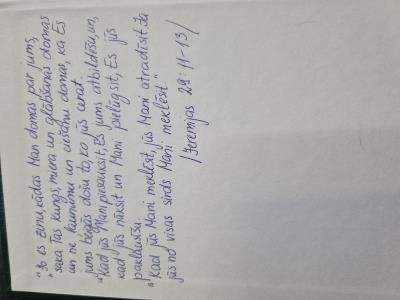 "Jo es zinu, kādas Man domas par jums,
saka Tas Kungs, miera un glābšanas domas
un ne ļaunumu un ciešanu domas, ka Es
jums beigās došu to, ko jūs cerat.
"Kad jūs Mani piesauksit, Es jums atbildēšu, un,
kad jūs nāksit un Mani pielūgsit, Es jūs
paklausīšu.
"Kad jūs Mani meklēsit, jūs Mani atradīsit. Ja
jūs no visas sirds Mani meklēsit"
/Jeremijas 29:11-13/